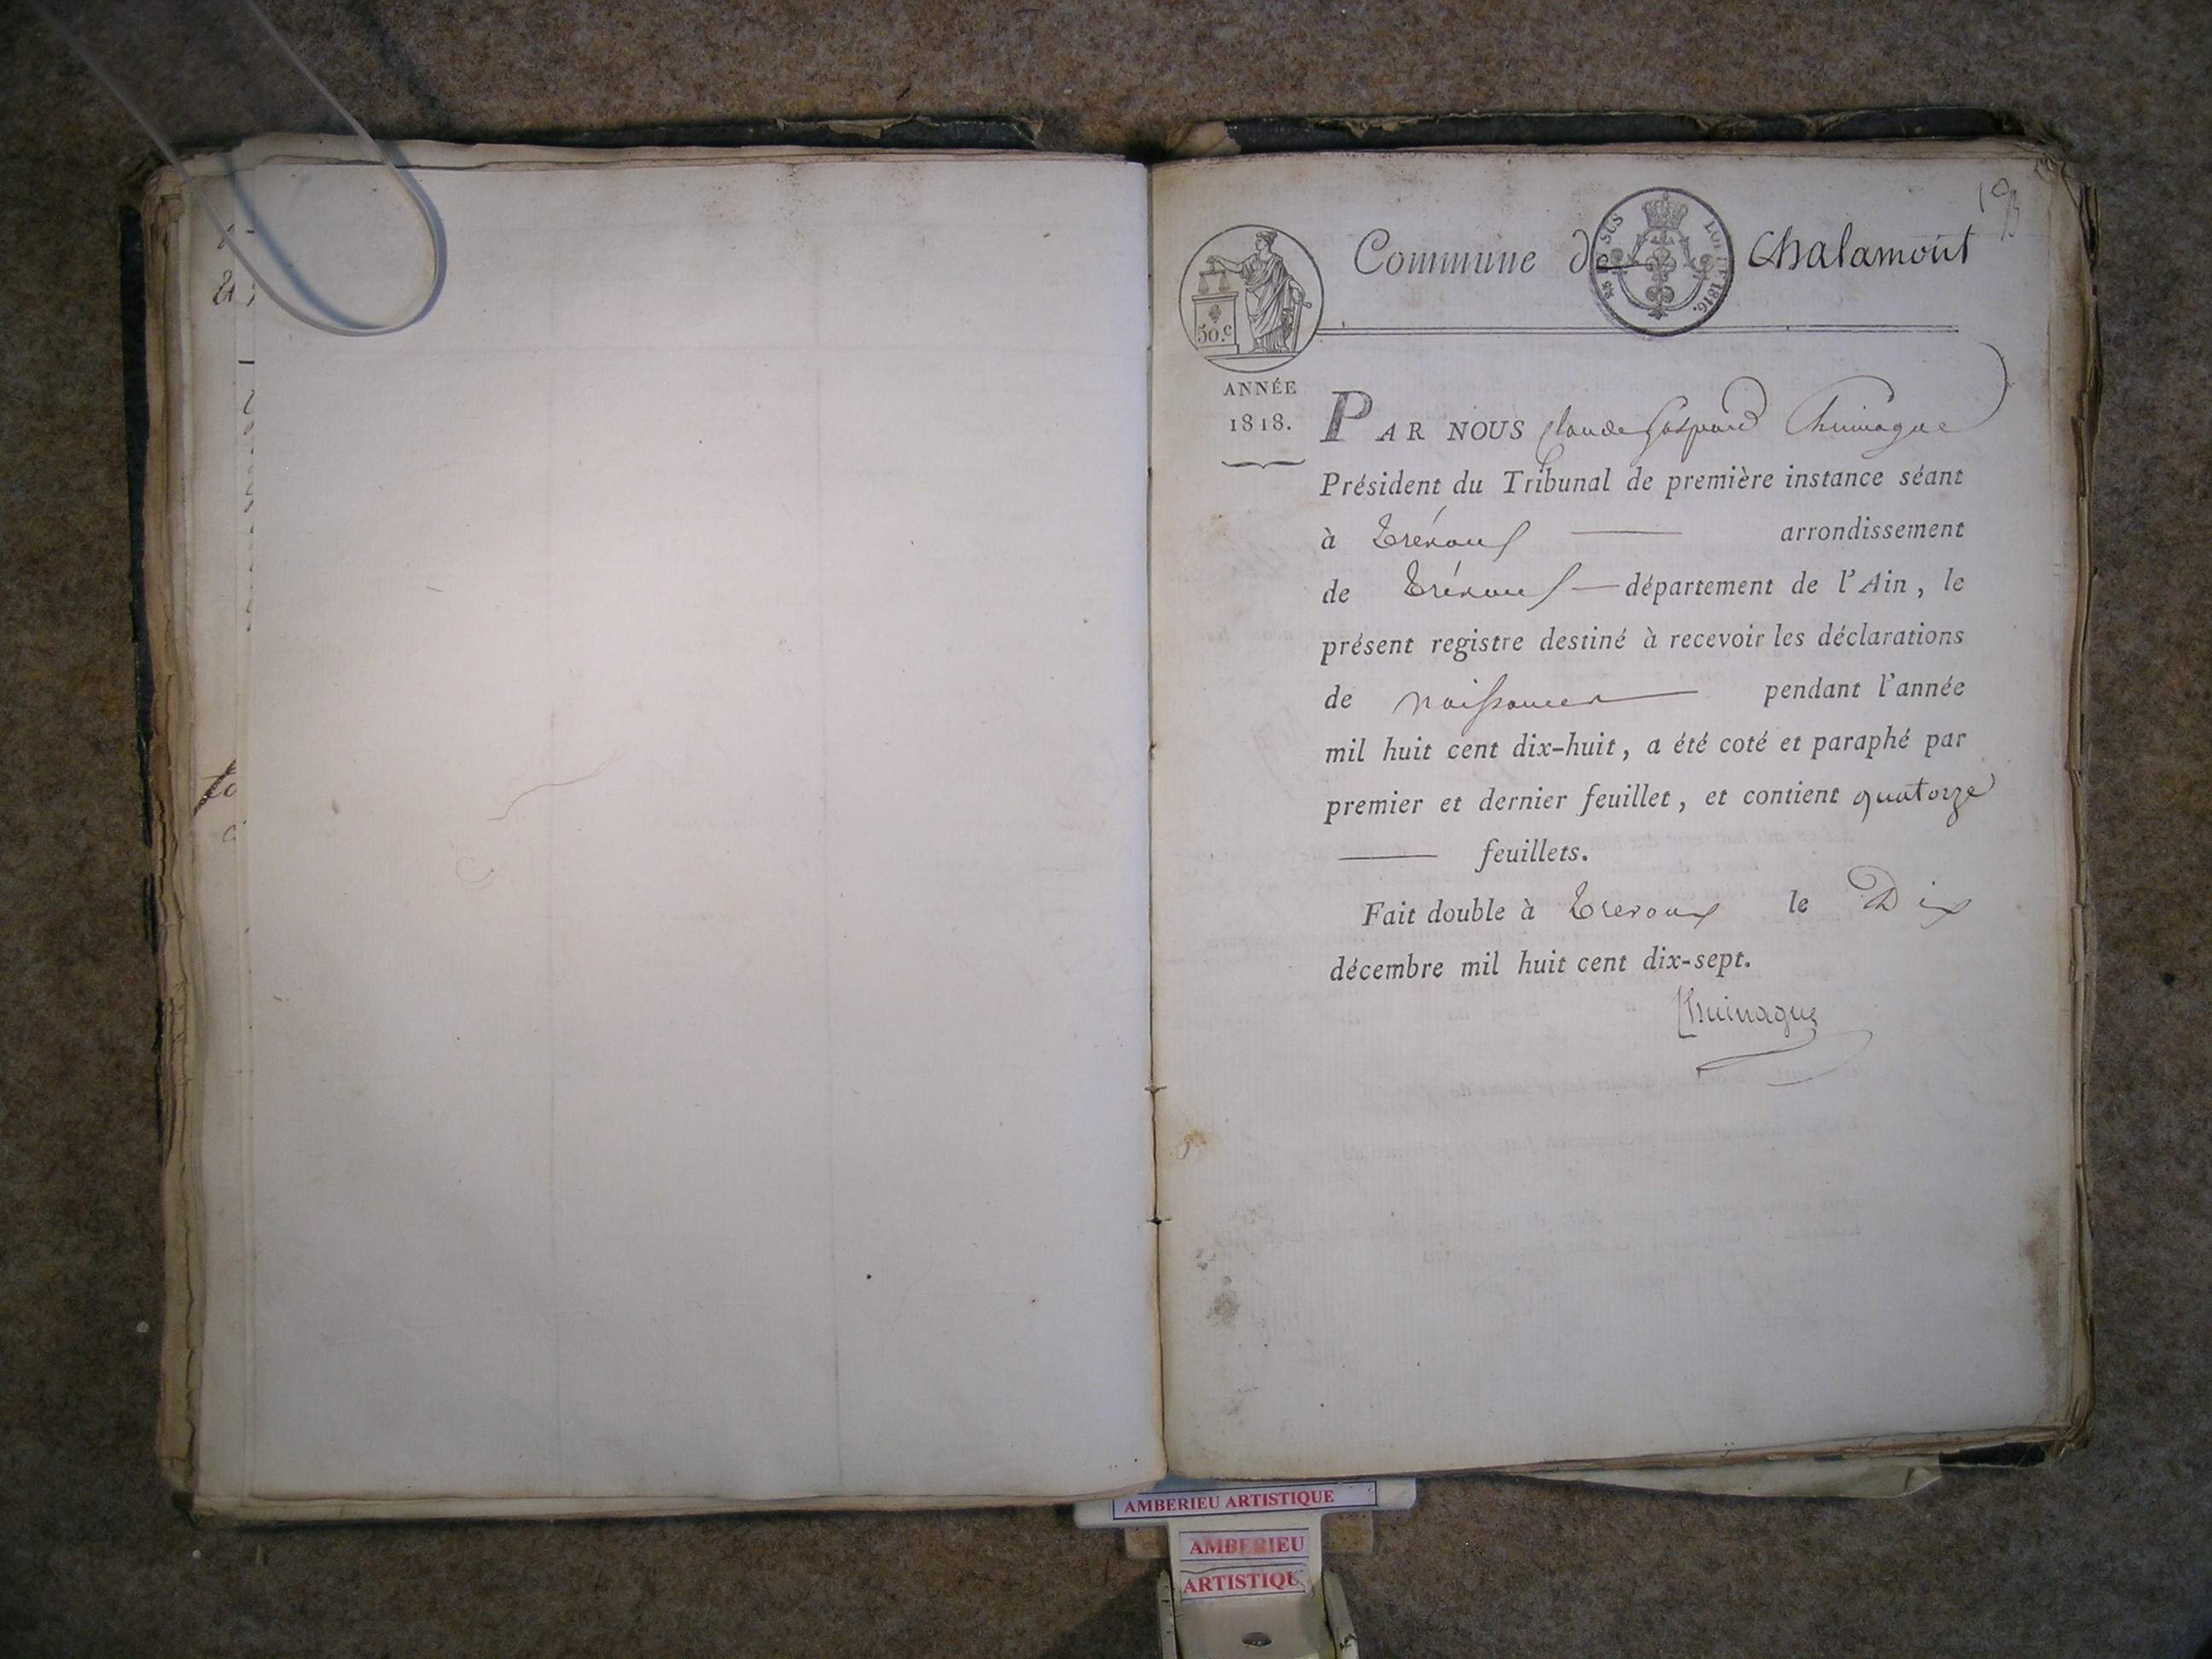 Commune de Chalamont
EN SUS
LOI DE 1816.
50.c
ANNÉE
1818.
PAR NOUS Claude Gaspard Chuinague
Président du Tribunal de première instance séant
à Trévoux arrondissement
de Trévoux département de l'Ain, le
présent registre destiné à recevoir les déclarations
de naissances pendant l'année
mil huit cent dix-huit, a été coté et paraphé par
premier et dernier feuillet, et contient quatorze
feuillets.
Fait double à Trevoux le Dix
décembre mil huit cent dix-sept.
Chuinague
AMBERIEU ARTISTIQUE
AMBERIEU
ARTISTIQUE